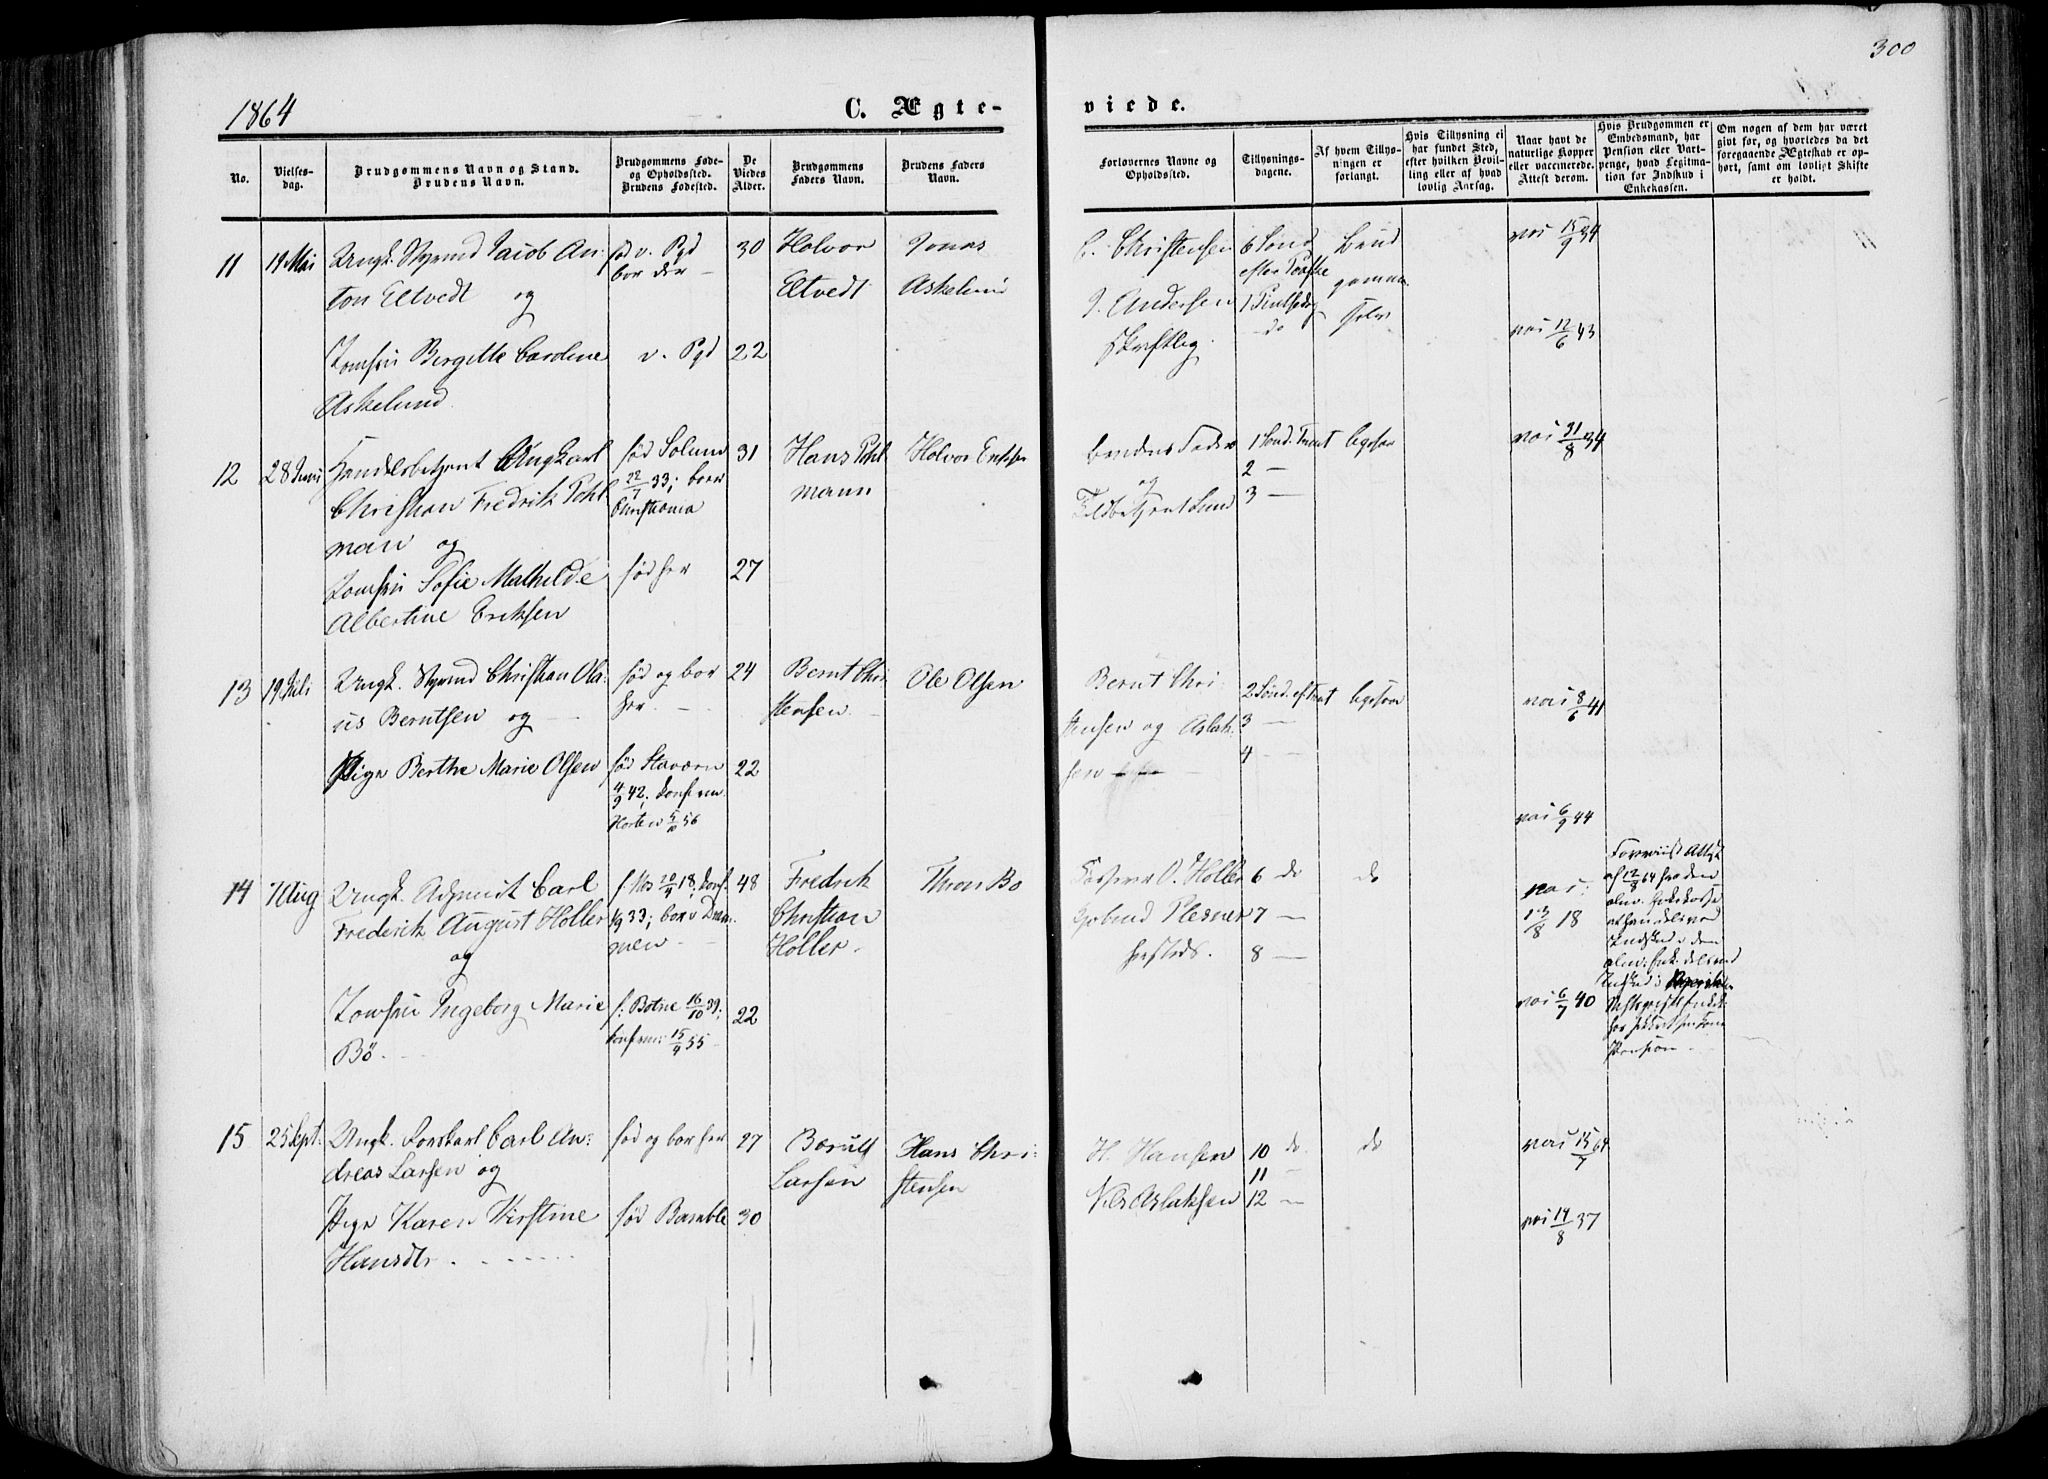 300
1864
C. Ægte-
viede.
No.
Vielses-
dag.
Brudgommens Navn og Stand.
Brudens Navn.
Brudgommens Føde-
og Opholdssted.
Brudens Fødested.
De
Viedes
Alder.
Brudgommens
Faders Navn.
Brudens Faders
Navn.
Forlovernes Navne og
Opholdssted.
Tillysnings-
dagene.
Af hvem Tillys-
ningen er
forlangt.
Hvis Tillysning ei
har fundet Sted,
efter hvilken Bevil-
ling eller af hvad
lovlig Aarsag.
Naar havt de
naturlige Kopper
eller vaccinerede.
Attest derom.
Hvis Brudgommen er
Embedsmand, har
Pension eller Vart-
penge, hvad Legitima-
tion for Indskud i
Enkekassen.
Om nogen af dem har været
givt før, og hvorledes da det
foregaaende Ægteskab er op-
hørt, samt om lovligt Skifte
er holdt.
11
19 Mai
Ungk. Styrmd Jacob An-
ton Eltvedt og
Jomfru Bergitte Cardine
Askelund
fød v. Pgd
bor der —
v. Pgd
30
22
Halvor
Eltvedt
Jonas
Askelund
C. Christensen
J. Andersen
skriftlig.
6 Sønd
efter Paaske
1 Pintsedag
do
Brud
gomme
selv
vac 15/9 34
vac 12/6 43
12
28 Juni
Handelsbetjent Ungkarl
Christian Fredrik Pohl
man og
Jomfru Sofie Mathilde
Albertine Eriksen
fød Solum
22/7 33; boer
Christiania
fød her
31
27
Hans Pohl
mann
Halvor Eriksen
Brudens Fader
og
Toldbetjent Lund
1 Sønd. Trint
2 —
3 —
ligesaa
vac 31/8 34
13
19 Juli
Ungk. Styrmd Christian Ola-
us Berntsen og —
Pige Berthe Marie Olsen
fød og bor
her. —
fød Staværn
4/9 42; konf. ved
Horten 5/10 56
24
22
Bernt Chri-
stensen —
Ole Olsen
Bernt Chri-
stensen og Aslak-
sen
2 Sønd. ef Trint
3 —
4 —
ligesom
vac 8/6 41
vac 6/9 44
14
7 Aug
Ungk. Adjunct Carl
Frederik August Holler
og
Jomfru Ingeborg Marie
Bö. —
f: Mos 20/4 18; konf.
1933; bor v Dram-
men —
f: Botne 16/10 39;
konf. 15/4 55 —
48
22
Fredrik
Christian
Holler.
Thron Bo
O. Holler
Plesner
hersteds.
6 do
7 —
8 —
do
vac:
13/8 18
vac 6/7 40
Forevist Attest
af 12/8 64 fra den
alm. Enkekasse
Indskud i den
Pension —
15
25 Sept.
Ungk. Carl An-
dreas Larsen og
Pige Karen Kirstine
Hansdtr . . .
fød og bor her
fød Bamble
27
30
Larsen
Hans Chri-
stensen
H. Hansen
Nils Aslaksen
10 do
11 —
12 —
do
vac 15/7 64
vac 14/8 37